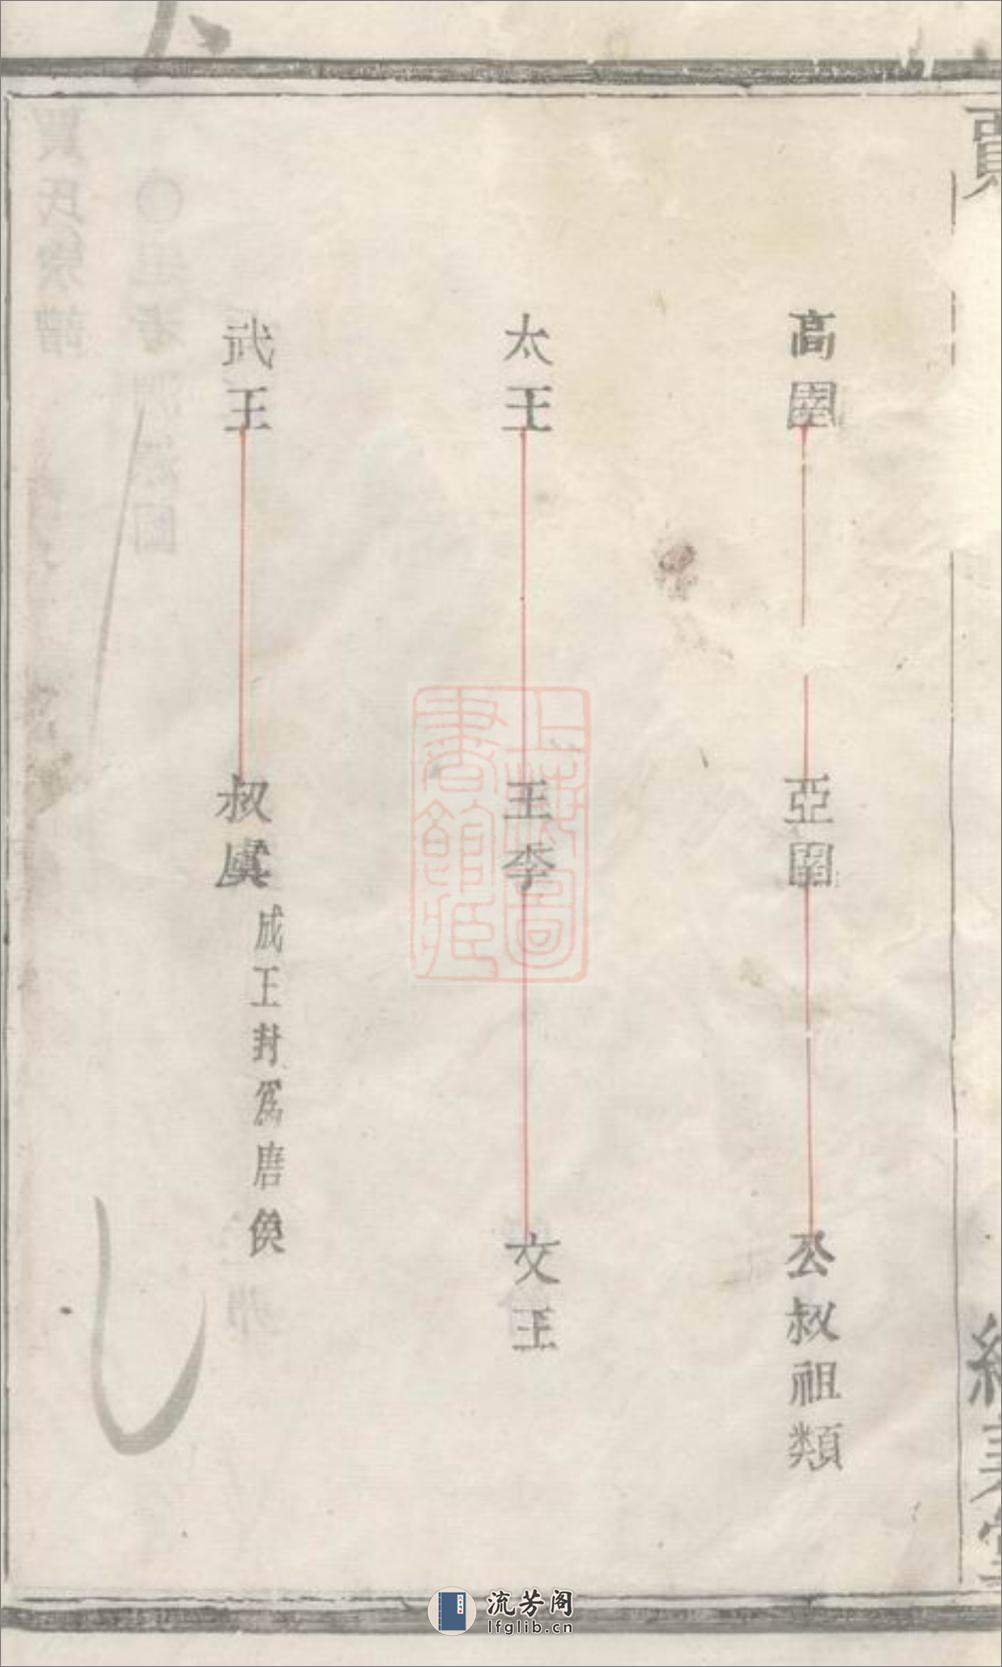 高圉
亞圉
公叔祖類
太王
王季
文王
武王
叔虞
成王封爲唐侯
上海圖
書館藏
流芳阁
lfglib.cn